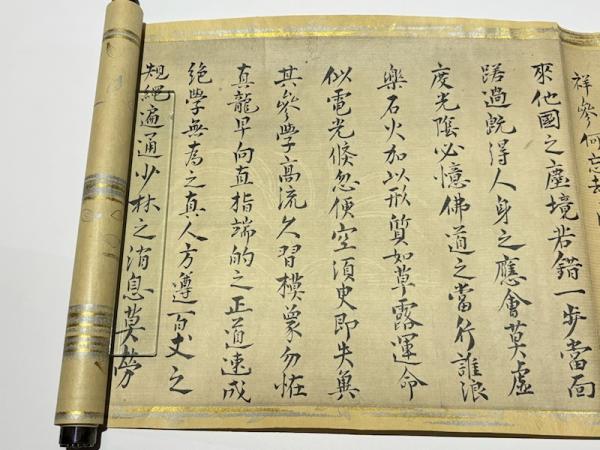 祥參何忘
來他國之塵境若錯一步當面
蹉過既得人身之應會莫虛
度光陰必憶佛道之當行誰浪
樂石火加以形質如草露運命
似電光倐忽便空須臾即失冀
其參學高流久習模象勿恠
真龍早向直指端的之正道速成
絶學無為之真人方遵百丈之
規繩遍通少林之消息莫勞